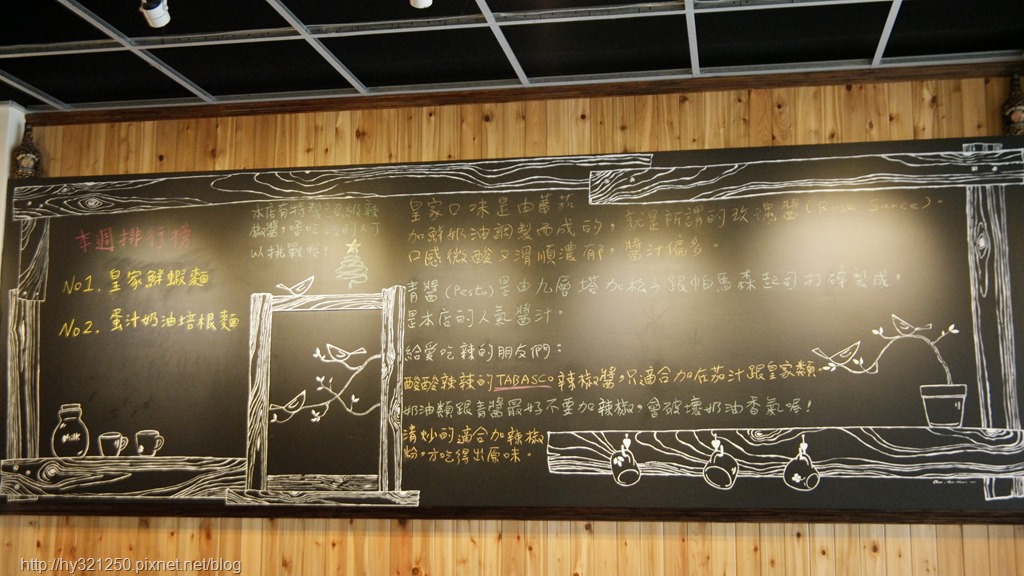 本週排行榜
No1. 皇家鮮蝦麵
No2. 蛋汁奶油培根麵
本店有特製
椒醬，嗜吃辣的人可
以挑戰喔！
皇家口味是由蕃茄
加鮮奶油調製而成的，就是所謂的玫瑰醬(Rose Sauce)。
口感微酸又滑順濃郁，醬汁偏多。
青醬(Pesto)是由九層塔加松子跟帕馬森起司打碎製成，
是本店的人氣醬汁。
給愛吃辣的朋友們：
酸酸辣辣的TABASCO辣椒醬，只適合加在茄汁跟皇家類。
奶油類跟青醬最好不要加辣椒，會破壞奶油香氣喔！
清炒的適合加辣椒
粉，才吃得出原味。
Milk
http://hy321250.pixnet.net/blog